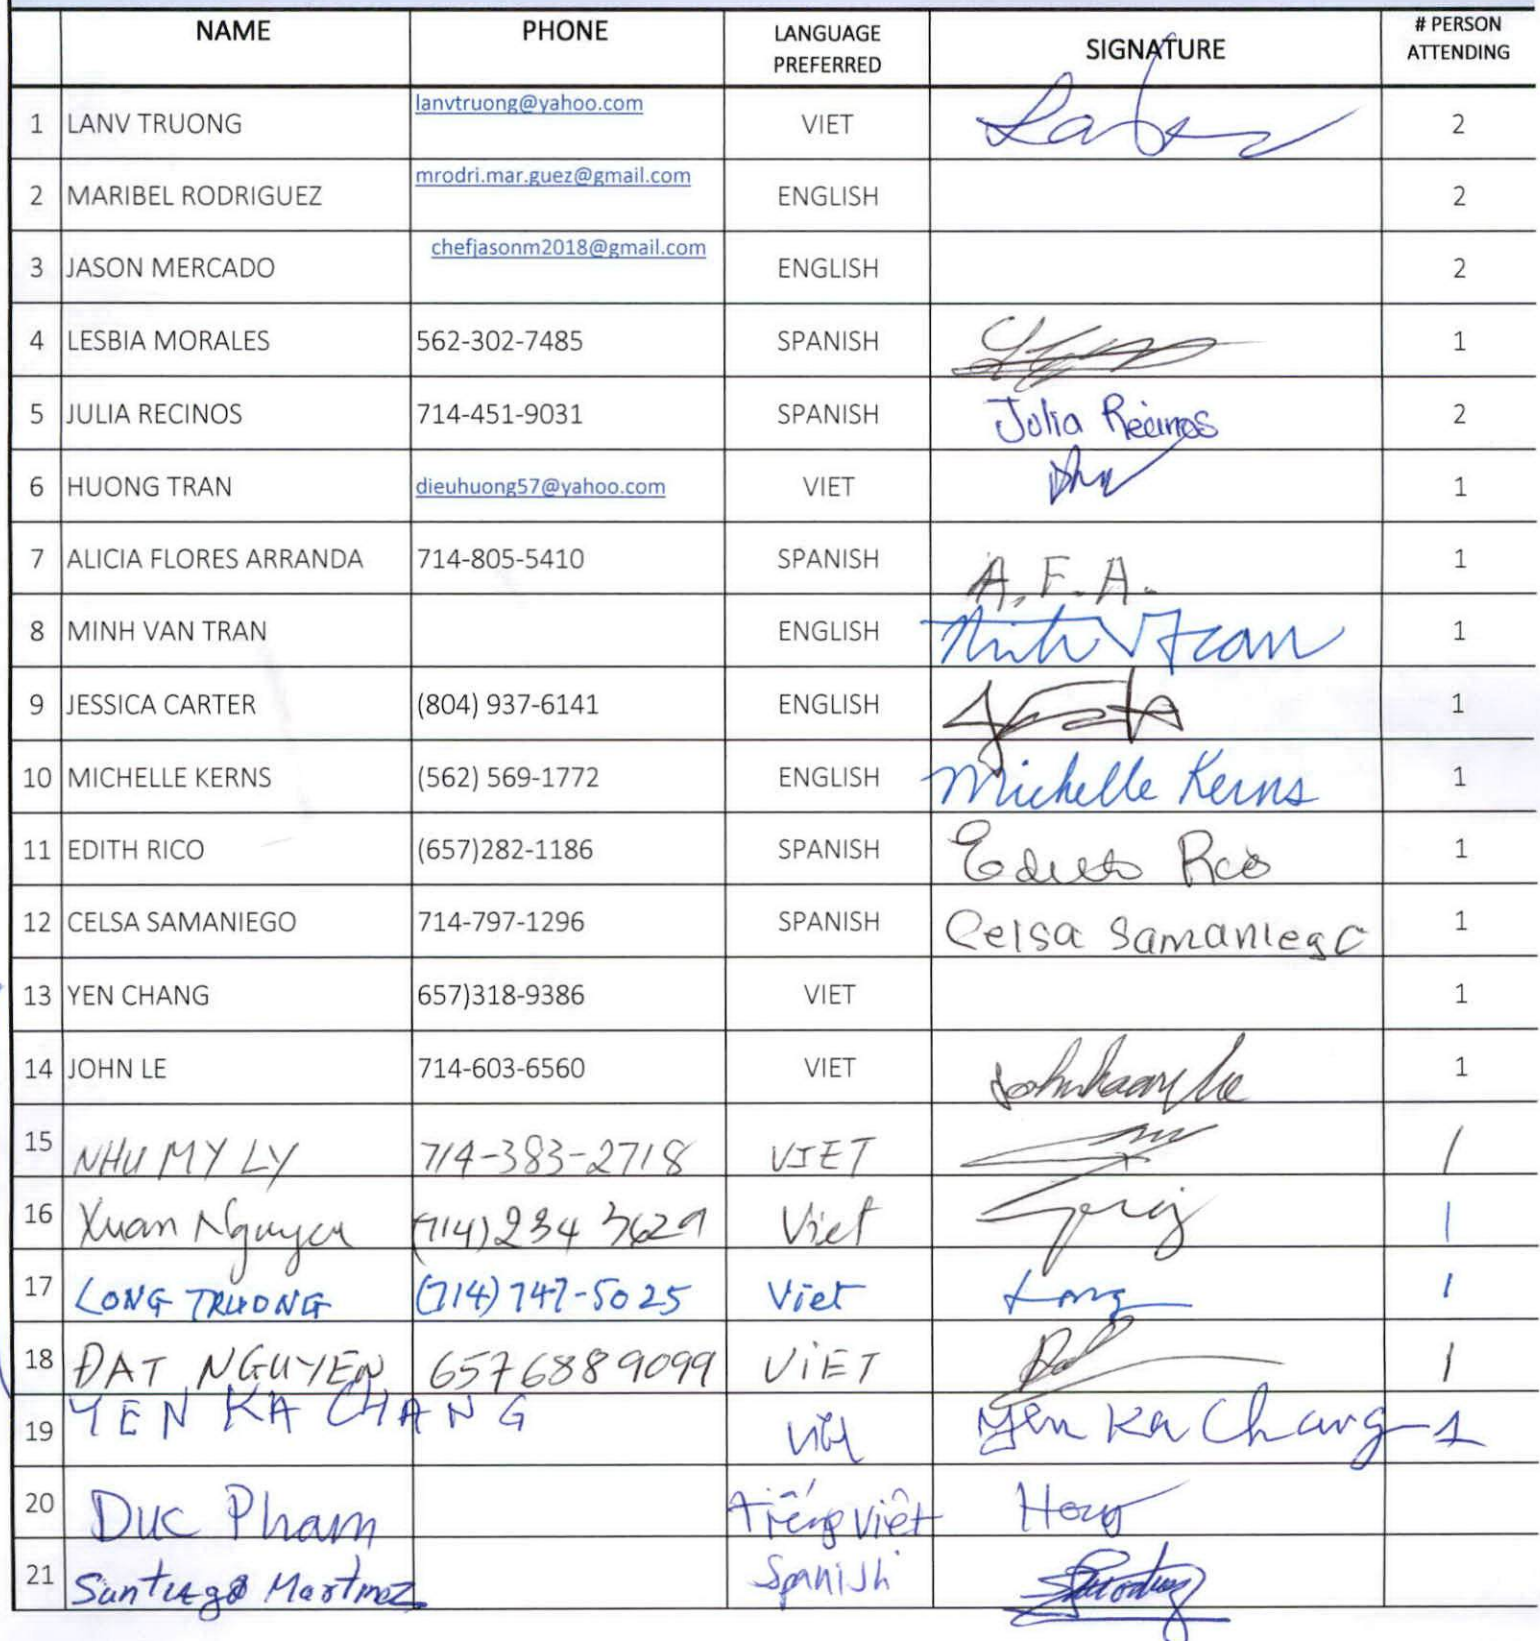 NAME PHONE LANGUAGE PREFERRED SIGNATURE # PERSON ATTENDING
1 LANV TRUONG lanvtruong@yahoo.com VIET 2
2 MARIBEL RODRIGUEZ mrodri.mar.guez@gmail.com ENGLISH 2
3 JASON MERCADO chefjasonm2018@gmail.com ENGLISH 2
4 LESBIA MORALES 562-302-7485 SPANISH 1
5 JULIA RECINOS 714-451-9031 SPANISH Julia Recinos 2
6 HUONG TRAN dieuhuong57@yahoo.com VIET 1
7 ALICIA FLORES ARRANDA 714-805-5410 SPANISH A.F.A. 1
8 MINH VAN TRAN ENGLISH Minh V Tran 1
9 JESSICA CARTER (804) 937-6141 ENGLISH 1
10 MICHELLE KERNS (562) 569-1772 ENGLISH Michelle Kerns 1
11 EDITH RICO (657)282-1186 SPANISH Edith Rico 1
12 CELSA SAMANIEGO 714-797-1296 SPANISH Celsa Samaniego 1
13 YEN CHANG 657)318-9386 VIET 1
14 JOHN LE 714-603-6560 VIET 1
15 NHU MY LY 714-383-2718 VIET 1
16 Xuan Nguyen (714) 234 3629 Viet 1
17 LONG TRUONG (714) 747-5025 Viet Long 1
18 ĐAT NGUYEN 6576889099 ViET 1
19 YEN KA CHANG Việt Yen Ka Chang 1
20 Duc Pham Tiếng Việt
21 Santiago Martinez Spanish